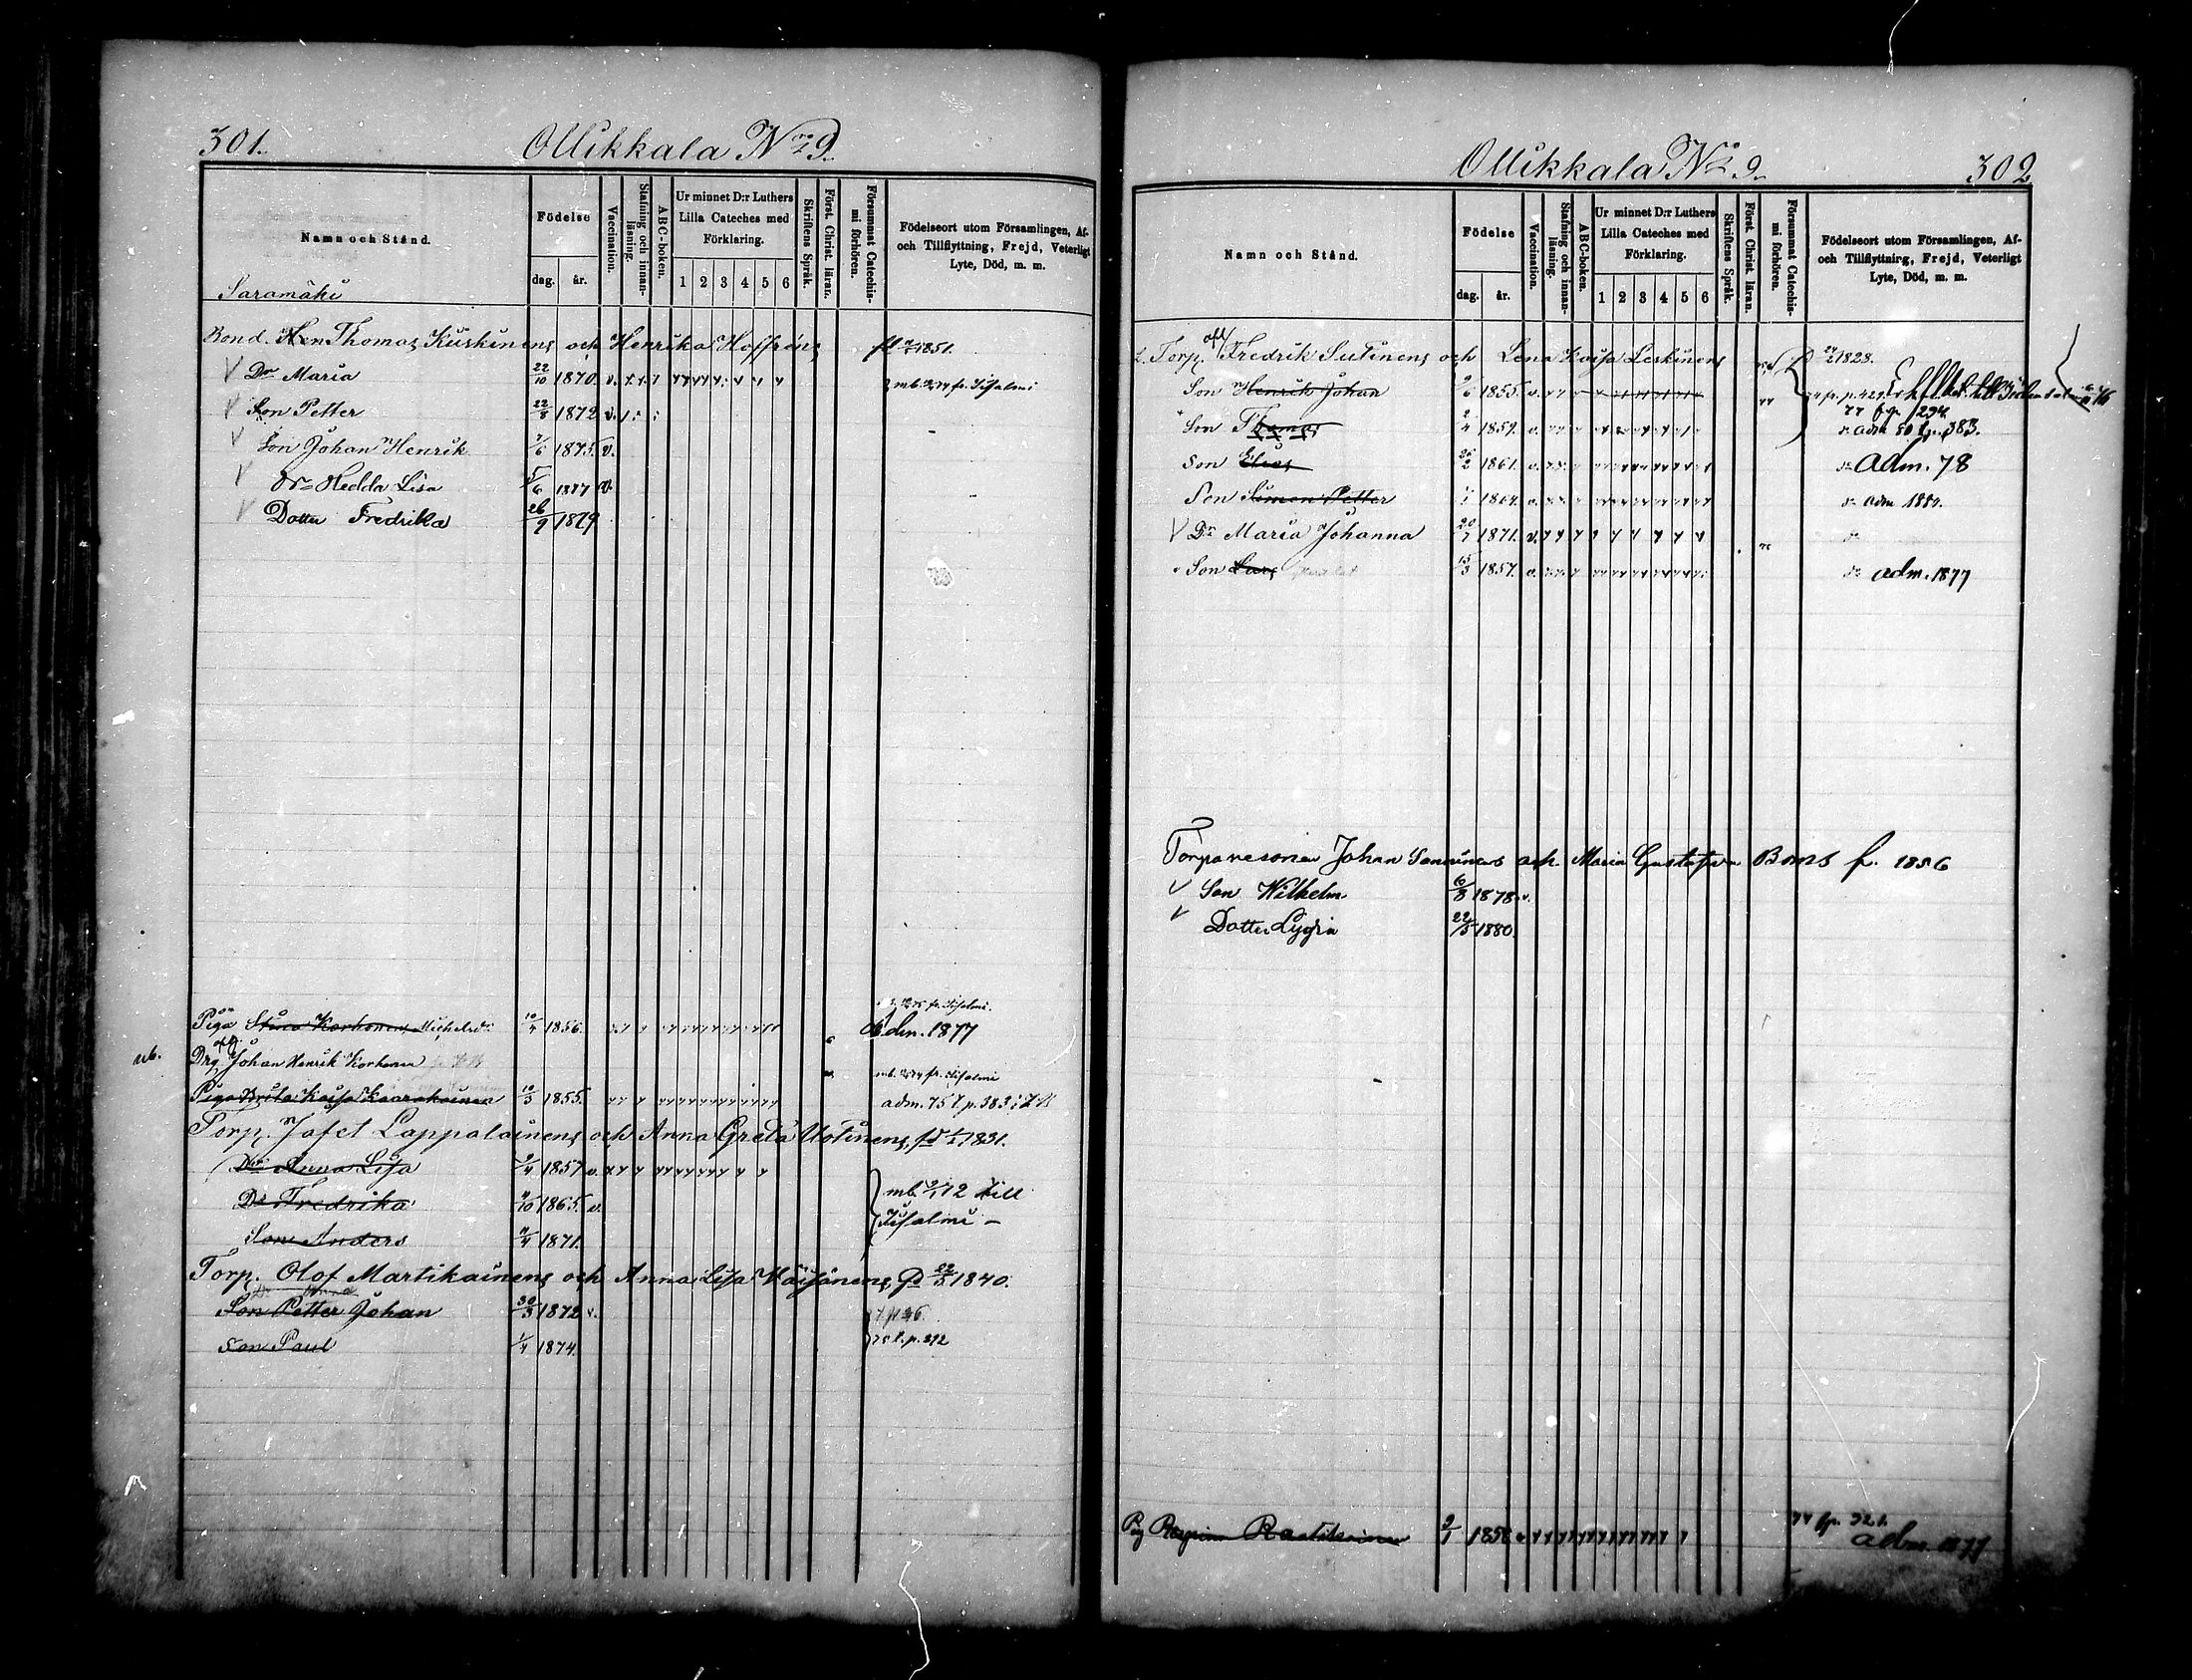 301.
Ollikkala No 9.
Namn och Stånd.
Födelse
dag.
år.
Vaccination.
Stafning och innanläsning.
ABC-boken.
Ur minnet D:r Luthers Lilla Cateches med Förklaring.
1 2 3 4 5 6
Skriftens Språk.
Först. Christ. läran.
Försummat Catechismi förhören.
Födelseort utom Församlingen, Af- och Tillflyttning, Frejd, Veterligt Lyte, Död, m. m.
Saramäki
Bond. Thomas Kuskinens och Henrika Hoffréns 1851.
Dr Maria 22/10 1870. Iisalmi
Son Petter 22/8 1872 v.
Son Johan Henrik 7/6 1875. v.
Dr Hedda Lisa 5/6 1877 v.
Dotter Fredrika 26/9 1879
fr. Iisalmi.
Piga Stina Korhonen Michelsdr 10/4 1856. Adm. 1877
nb.
Drg Johan Henrik Korhonen
fr. Iisalmi
Piga Brita Kaisa 10/3 1855. adm. 75 t. p. 383
Torp. Jafet Lappalainens och Anna Greta Uotinens, fd 1831.
Dr Anna Lisa 9/4 1857 v.
Dr Fredrika 4/10 1865. v. mb. 72 till
Son Anders 4/4 1871. Iisalmi
Torp. Olof Martikainens och Anna Lisa Väisänens, fd 22/5 1840.
Son Petter Johan 30/3 1872 v.
Son Paul 1/4 1874. 75 t. p. 392
Ollikkala No 9.
302
Namn och Stånd.
Födelse
dag.
år.
Vaccination.
Stafning och innanläsning.
ABC-boken.
Ur minnet D:r Luthers Lilla Cateches med Förklaring.
1 2 3 4 5 6
Skriftens Språk.
Först. Christ. läran.
Försummat Catechismi förhören.
Födelseort utom Församlingen, Af- och Tillflyttning, Frejd, Veterligt Lyte, Död, m. m.
Torp. Fredrik Sutinens och Lena Kaisa Leskinens 1828.
Son Henrik Johan 9/6 1855. v.
77 fr. p. 294
Son Thomas 2/4 1859. v. adm 80 t. p. 383.
Son Elias 26/2 1861. v. Adm. 78
Son Simon Petter 1864. v. adm 1880.
Dr Maria Johanna 20/7 1871. v.
Son Lars 15/3 1857. v. adm. 1877
Torparesonen Johan Sanninens och Maria Gustafva Boms f. 1856
Son Wilhelm 6/8 1878. v.
Dotter Lydia 22/5 1880.
Pig Regina Raatikainen 2/1 1858 74 fr. 321.
adm. 1877